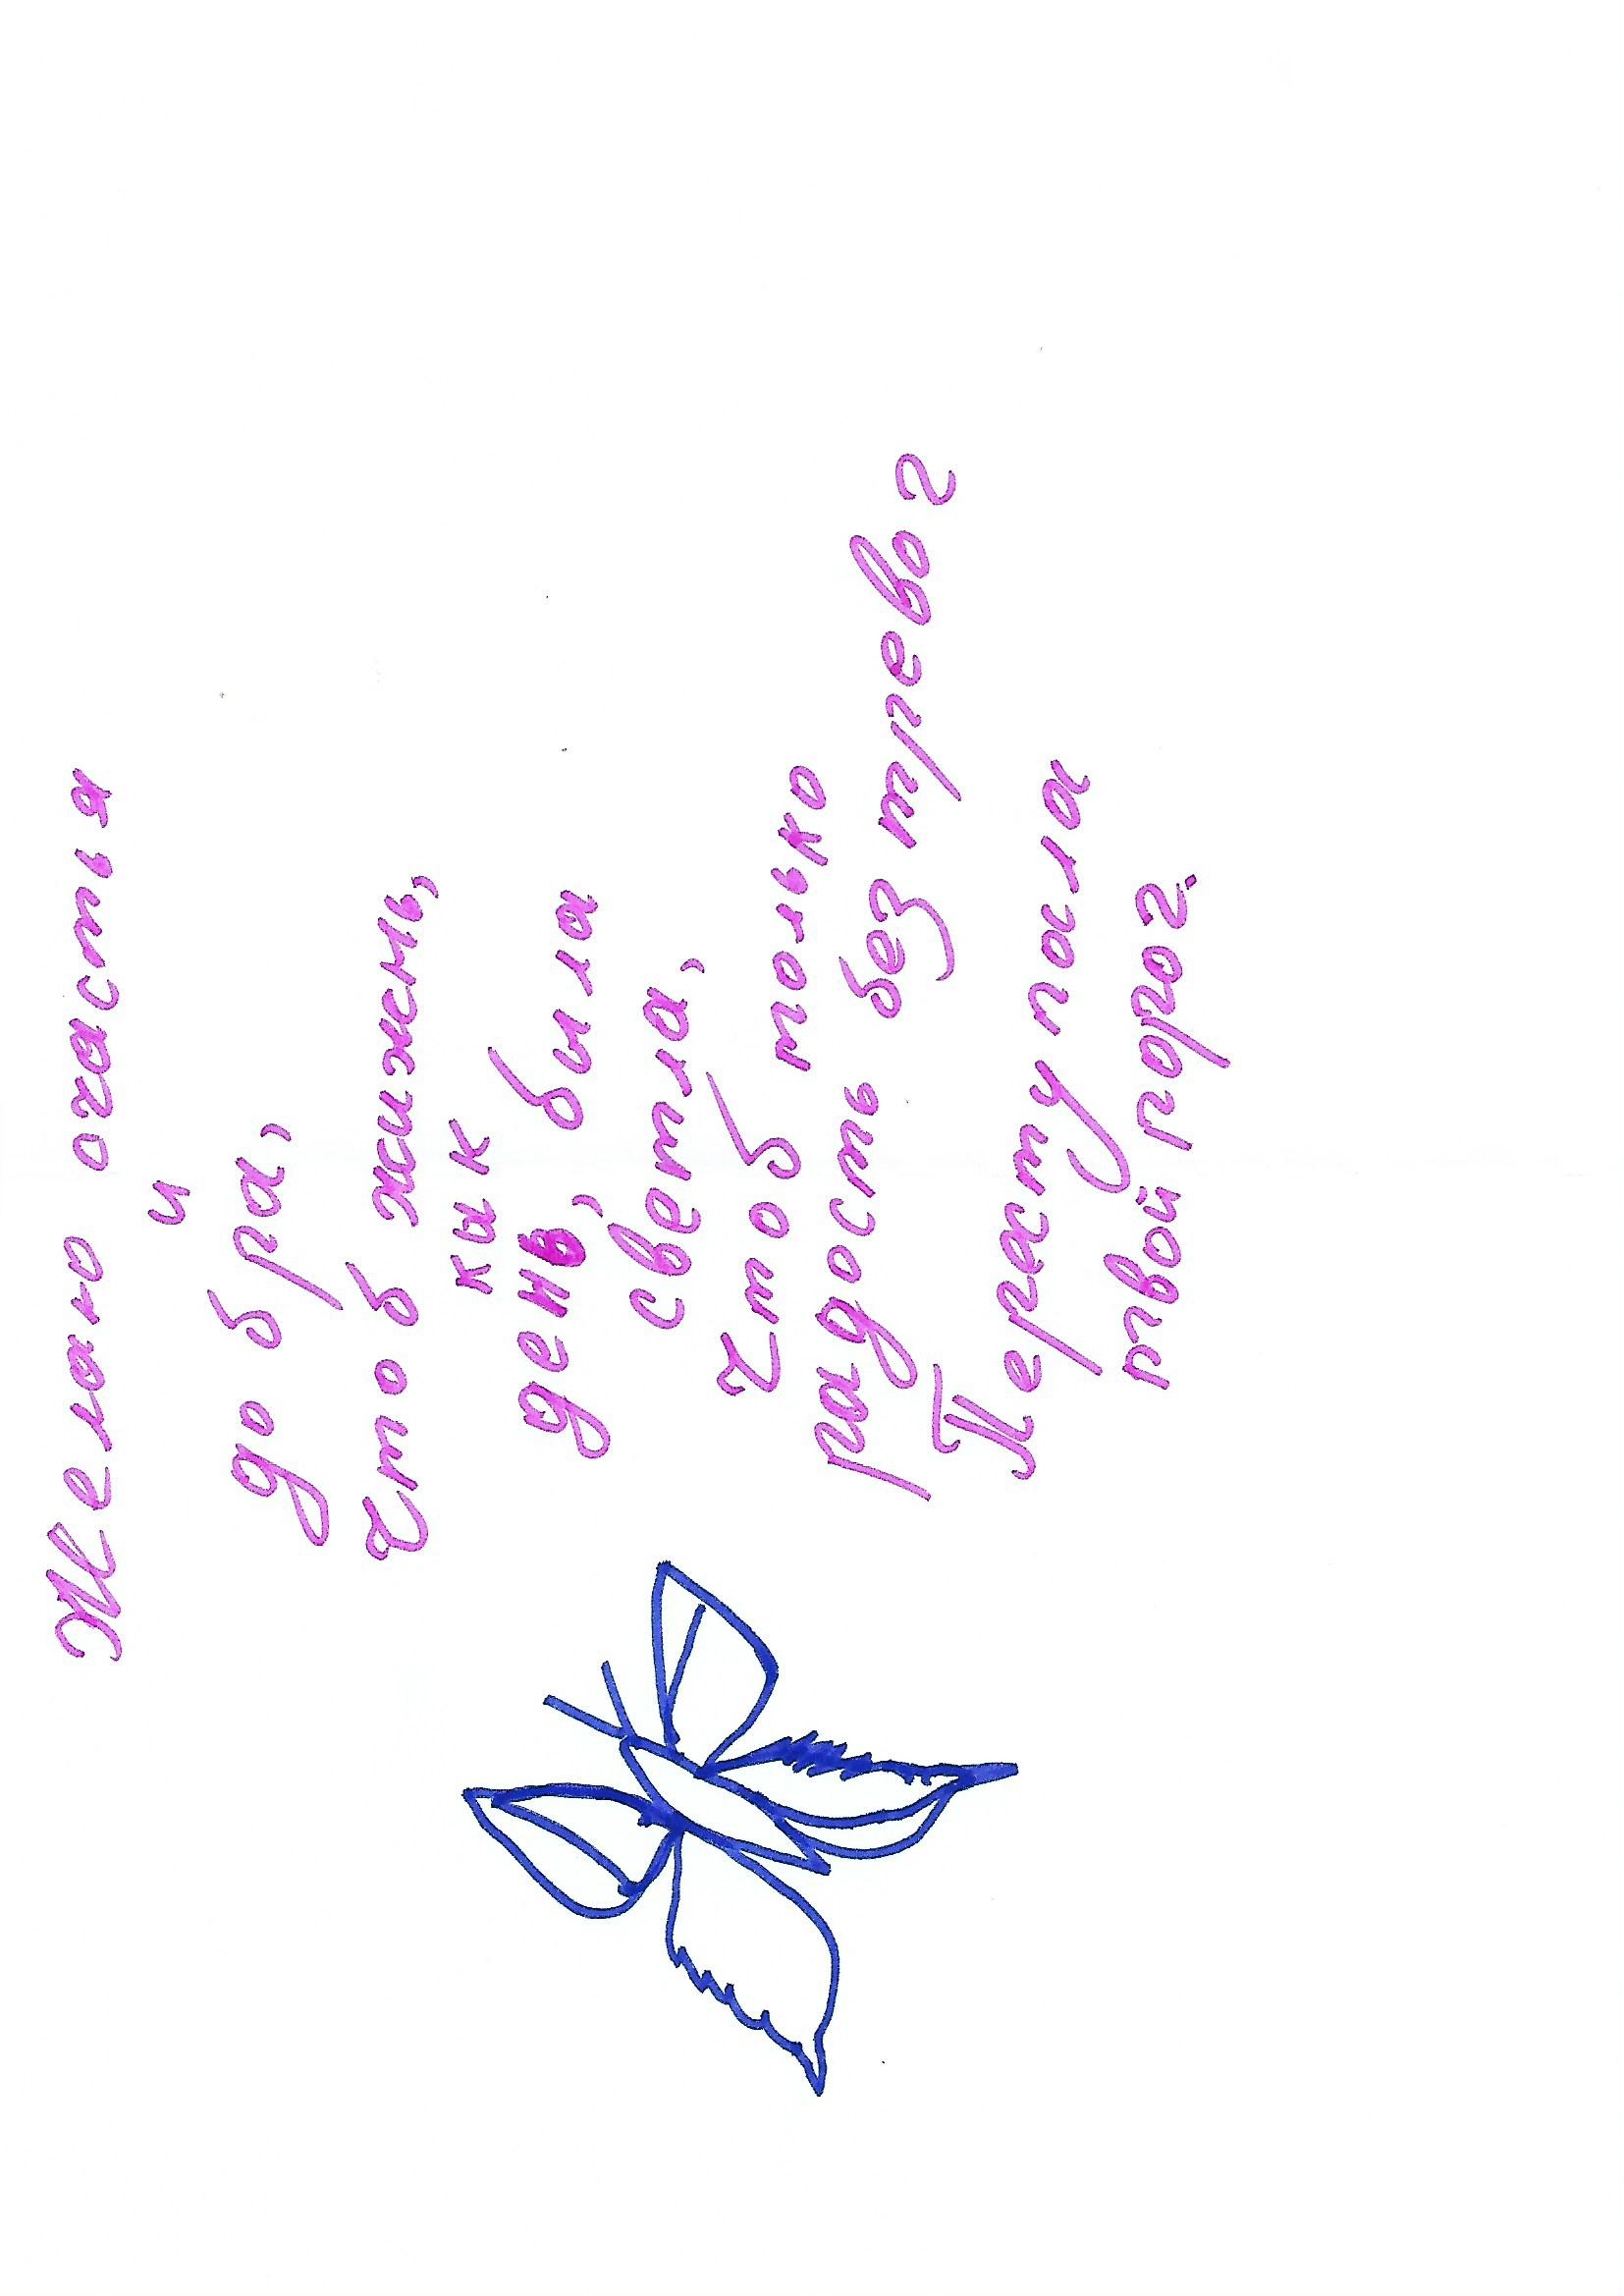 Желаю счастья
и
добра,
Чтоб жижнь,
как
день, была
светла,
Чтоб только
радость без тревог
Переступала
твой порог.